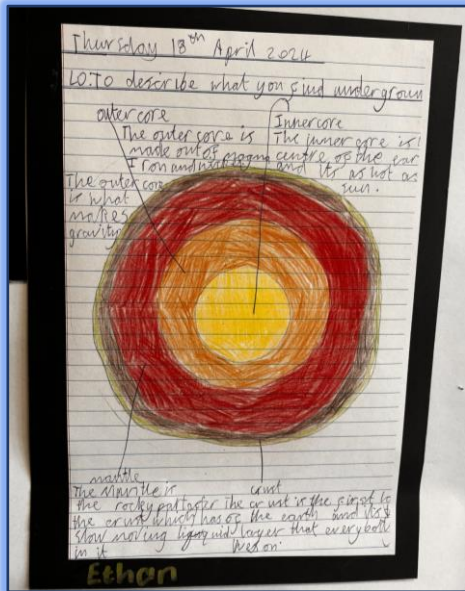 Thursday 13th April 2024
LO:To describe what you find undergroun
outer core
The outer core is
made out of magma
Iron and
The outer core
is what
makes
gravity
Inner core
The inner core is
centre of the ear
and its as hot as
sun.
mantle
The Mantle is
the rocky part after
the crust which has
slow moving liquid
in it
crust
The crust is the first l
of the earth and its
layer that every bod
lives on.
Ethan